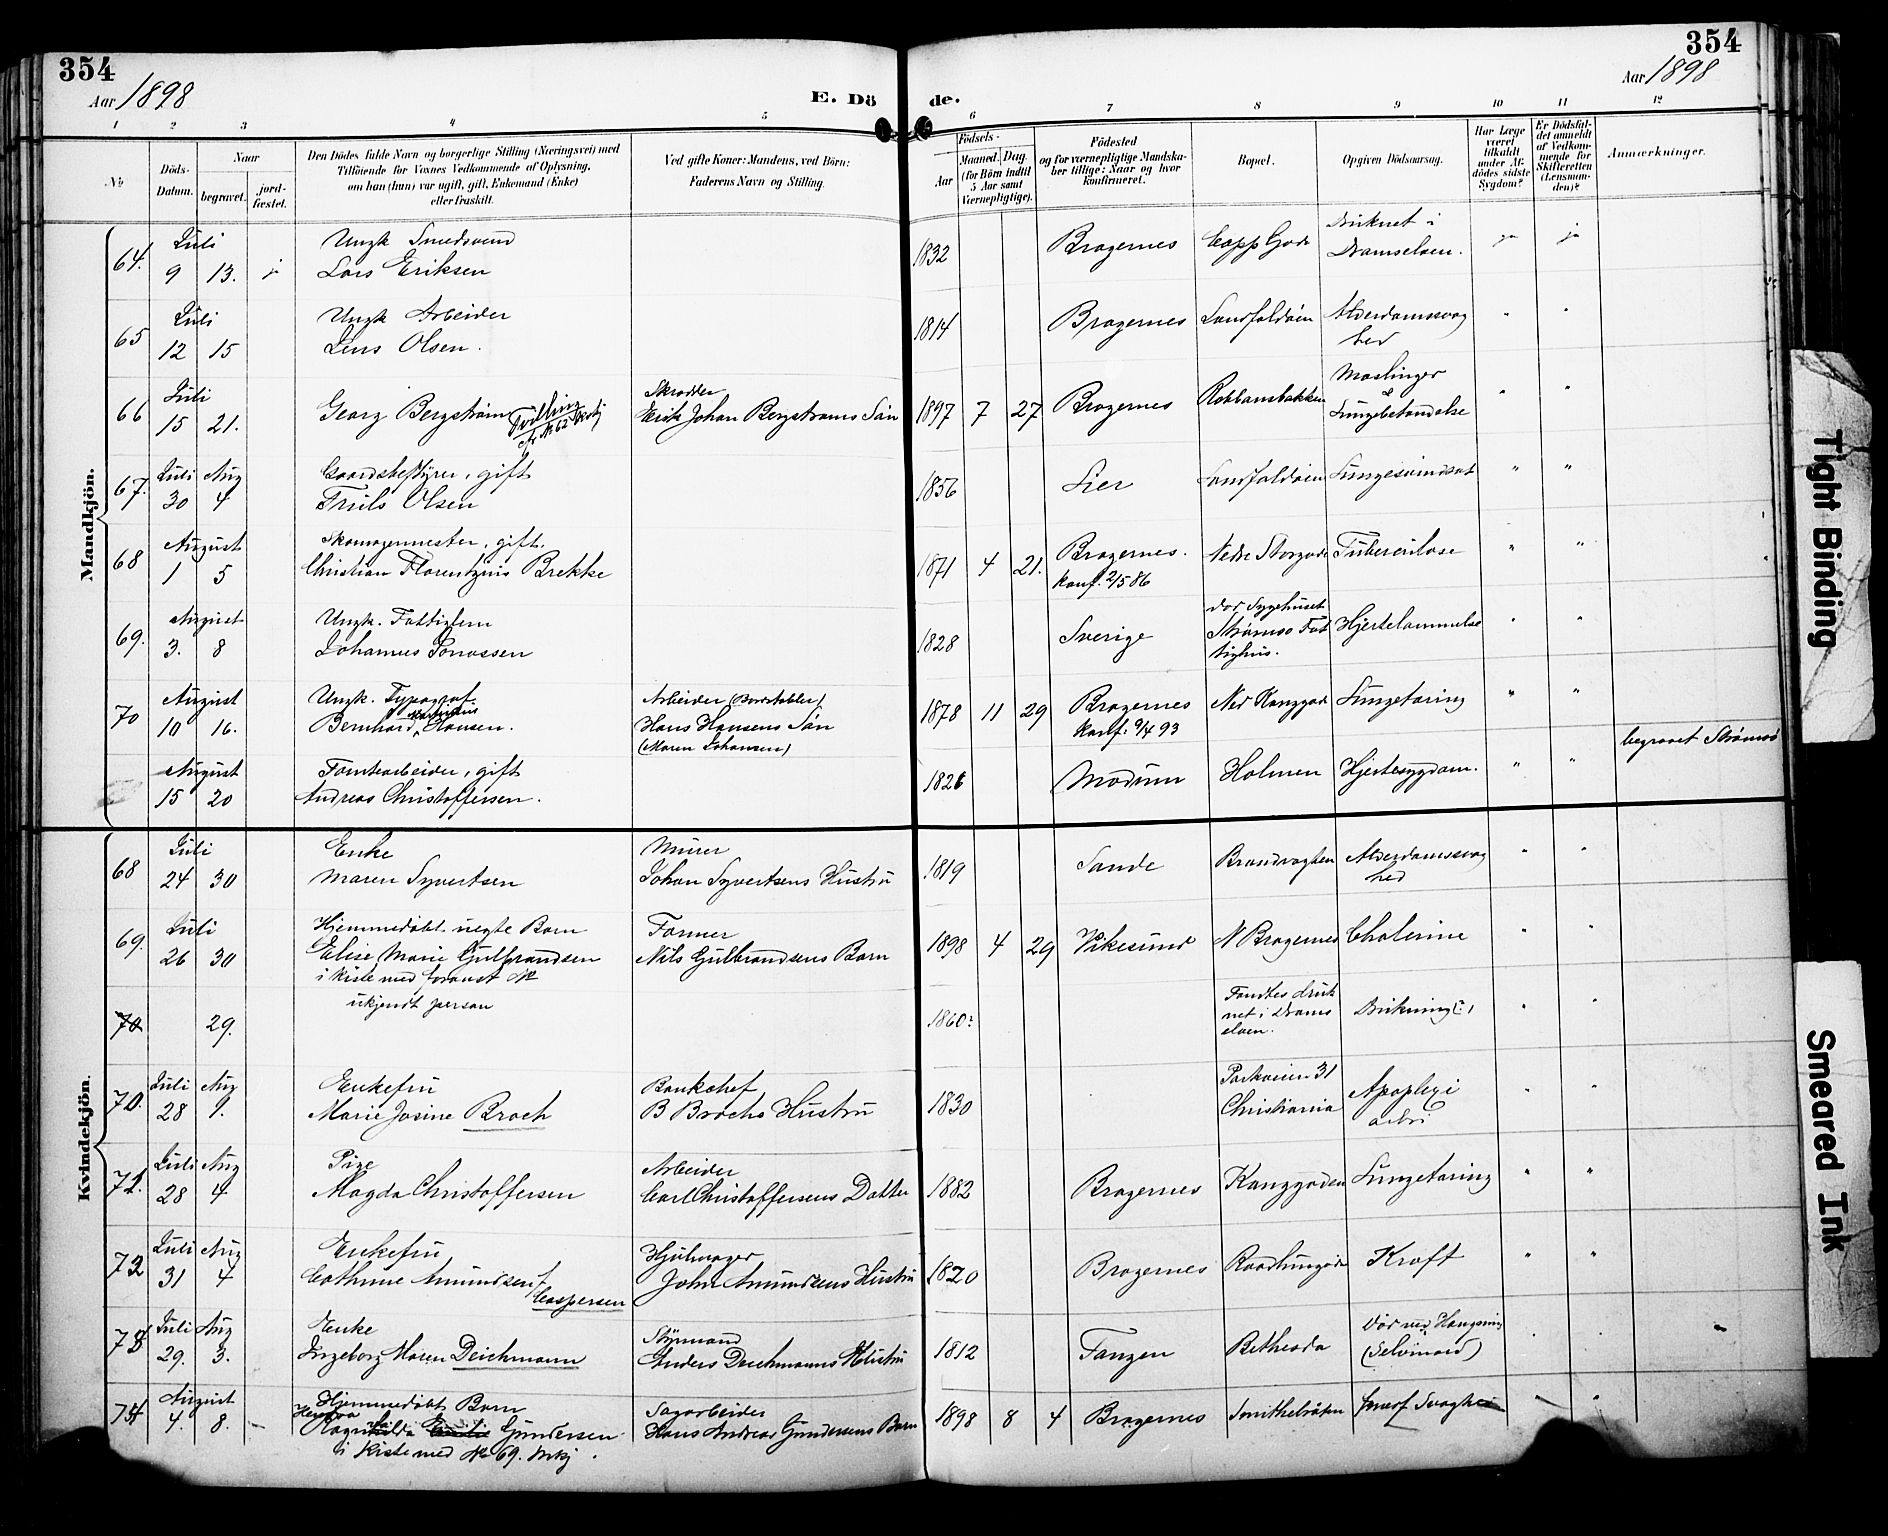 354
Aar 1898
E. Dö
de.
354
Aar 1898
1 2 3 4 5 6 7 8 9 10 11 12
No
Döds-Datum.
Naar
begravet.
jord-fæstet.
Den Dödes fulde Navn og borgerlige Stilling (Næringsvei) med
Tilföiende for Voxnes Vedkommende af Oplysning,
om han (hun) var ugift, gift, Enkemand (Enke)
eller fraskilt.
Ved gifte Koner: Mandens, ved Börn:
Faderens Navn og Stilling.
Födsels-
Aar
Maaned. Dag.
(for Börn indtil
5 Aar samt
Værnepligtige).
Födested
og for værnepligtige Mandska-
ber tillige: Naar og hvor
konfirmeret.
Bopæl.
Opgiven Dödsaarsag.
Har Læge
været
tilkaldt
under Af-
dödes sidste
Sygdom?
Er Dödsfal-
det anmeldt
af Vedkom-
mende for
Skifteretten
(Lensman-
den)?
Anmærkninger.
Mandkjön.
Juli Ungk Smedsvend Druknet i
64. 9 13. ja Lars Eriksen 1832 Bragernes Capp Gade Dramselven. ja ja
Juli Ungk Arbeider
65 12 15 Jens Olsen. 1814 Bragernes Landfaldøen Alderdomssvag
hed " "
Juli Skrædder Mæslinger
66 15 21. Georg Bergstrøm Tvilling af No 62 Erik Johan Bergstrøms Søn 1897 7 27 Bragernes Robbansbakken & Lungebetændelse " "
Juli Aug Gaardsbestyrer, gift
67. 30 4 Truls Olsen 1856 Lier Landfaldøen Lungesvindsot " "
August Skomagermester, gift.
68 1 5 Christian Florentzius Brekke 1871 4 21. Bragernes. Nedre Storgade Tuberculose " "
konf. 2/5 86
August Ungk. Fattiglem dør Sygehuset
69. 3. 8 Johannes Jonassen 1828 Sverige Strømsø Fat Hjertelammelse " "
tighus.
August Ungk. Typograf Arbeider (Bordstabler)
70 10 16. Bernhard Hansen. Hans Hansens Søn 1878 11 29 Bragernes Ned Kanggade Lungetæring " "
(Maren Johansen) Konf. 9/4 93
August Tomtearbeider, gift begravet Strømsø
15 20 Andreas Christoffersen. 1826 Modum Holmen Hjertesygdom. " "
Kvindekjön.
Juli Enke Murer
68 24 30 Maren Syvertsen Johan Syvertsens Hustru 1819 Sande Brandvagten Alderdomssvag
hed " "
Juli Hjemmedøbt uegte Barn Former
69. 26 30 Elise Marie Gulbrandsen Nils Gulbrandsens Barn 1898 4 29 Vikesund N Bragernes Cholerine " "
i kiste med foranst No
ukjendt person Fandtes druk
70 29. 1860? net i Drams Drukning(?) " "
elven.
Juli Aug Enkefru Bankchef Parkveien 31
70. 28 1. Marie Josine Broch B Brochs Hustru 1830 Christiania Apoplexi " "
Juli Aug Pige Arbeider
71. 28 4 Magda Christoffersen Carl Christoffersens Datter 1882 Bragernes Kanggaden Lungetæring " "
Juli Aug Enkefru Hjulmager
72 31 4 Cathrine Amundsen f John Amundsens Hustru 1820 Bragernes Raadhusgade Kræft " "
Caspersen
Juli Aug Enke Styrmand Dør ved Hængning
73 29. 3. Ingeborg Maren Deichmann Anders Deichmanns Hustru 1812 Tangen Bethesda (Selvmord) " "
August Hjemmedøbt Barn Sagarbeider
74 4. 8. Ragnhilda Gundersen Hans Andreas Gundersens Barn 1898 8 4 Bragernes Smithebråten Svaghed " "
i Kiste med No 69. Mkj.
Tight Binding
Smeared Ink